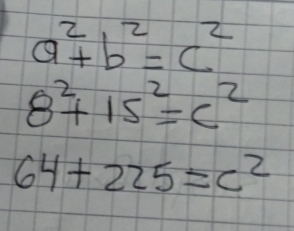 a²+b²=c²
8²+15²=c²
64+225=c²